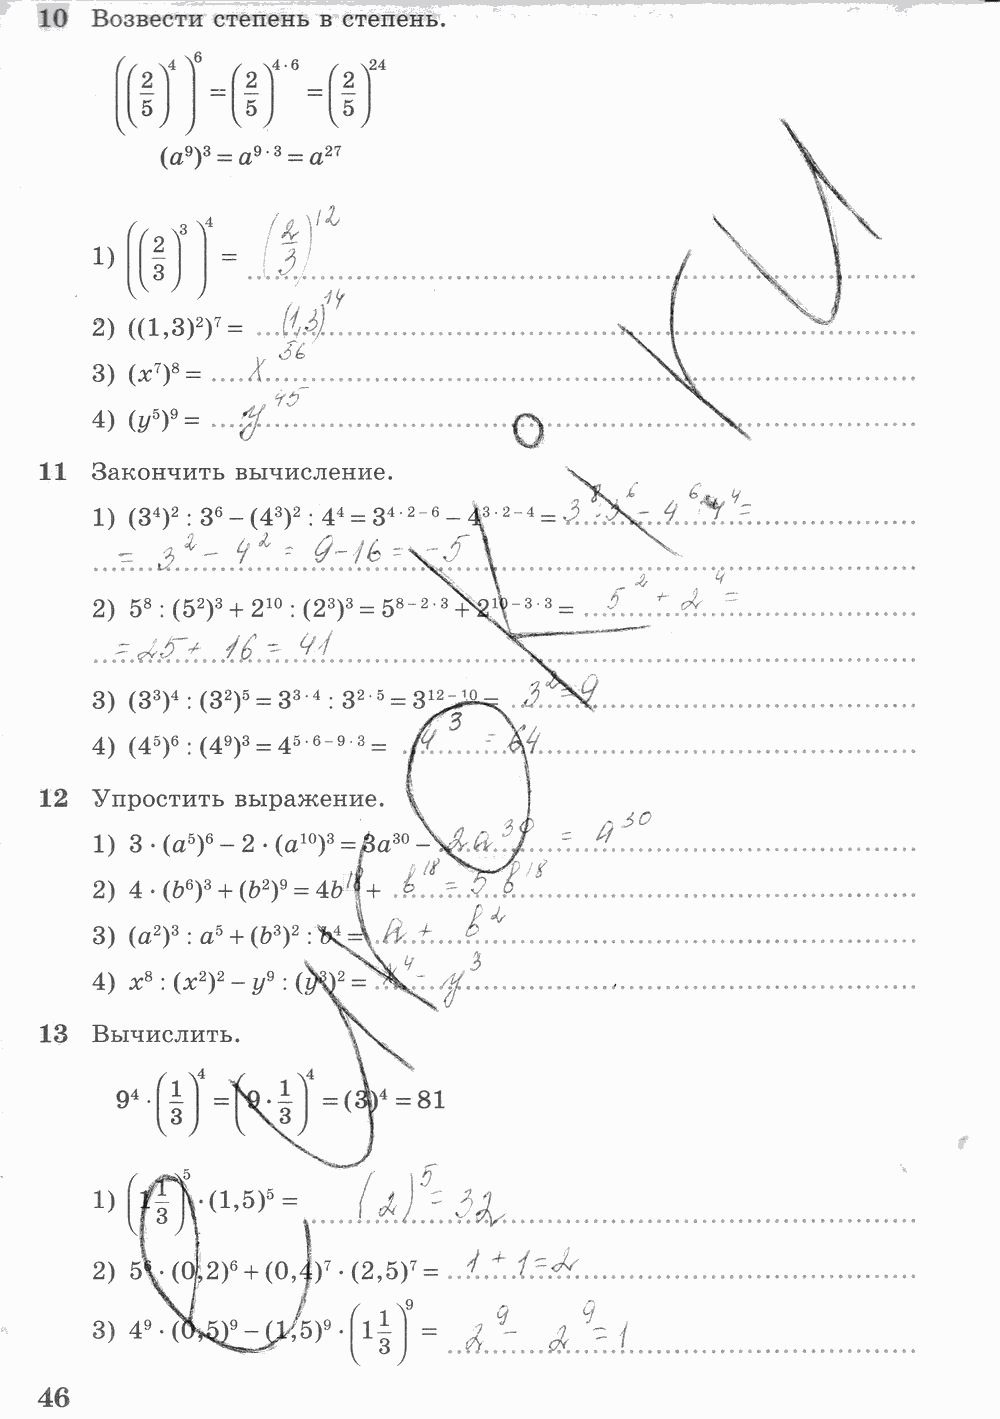 10 Возвести степень в степень.
((2/5)⁴)⁶ = (2/5)⁴·⁶ = (2/5)²⁴
(a⁹)³ = a⁹·³ = a²⁷
1) ((2/3)³)⁴ = (2/3)¹²
2) ((1,3)²)⁷ = (1,3)¹⁴
3) (x⁷)⁸ = x⁵⁶
4) (y⁵)⁹ = y⁴⁵
11 Закончить вычисление.
1) (3⁴)² : 3⁶ − (4³)² : 4⁴ = 3⁴·²⁻⁶ − 4³·²⁻⁴ = 3⁸:3⁶ − 4⁶:4⁴ =
= 3² − 4² = 9−16 = −5
2) 5⁸ : (5²)³ + 2¹⁰ : (2³)³ = 5⁸⁻²·³ + 2¹⁰⁻³·³ = 5² + 2⁴ =
= 25 + 16 = 41
3) (3³)⁴ : (3²)⁵ = 3³·⁴ : 3²·⁵ = 3¹²⁻¹⁰ = 3² = 9
4) (4⁵)⁶ : (4⁹)³ = 4⁵·⁶⁻⁹·³ = 4³ = 64
12 Упростить выражение.
1) 3 · (a⁵)⁶ − 2 · (a¹⁰)³ = 3a³⁰ − 2a³⁰ = a³⁰
2) 4 · (b⁶)³ + (b²)⁹ = 4b¹⁸ + b¹⁸ = 5b¹⁸
3) (a²)³ : a⁵ + (b³)² : b⁴ = a + b²
4) x⁸ : (x²)² − y⁹ : (y³)² = x⁴ − y³
13 Вычислить.
9⁴ · (1/3)⁴ = (9 · 1/3)⁴ = (3)⁴ = 81
1) (1 1/3)⁵ · (1,5)⁵ = (2)⁵ = 32
2) 5⁶ · (0,2)⁶ + (0,4)⁷ · (2,5)⁷ = 1 + 1 = 2
3) 4⁹ · (0,5)⁹ − (1,5)⁹ · (1 1/3)⁹ = 2⁹ − 2⁹ = 1
46